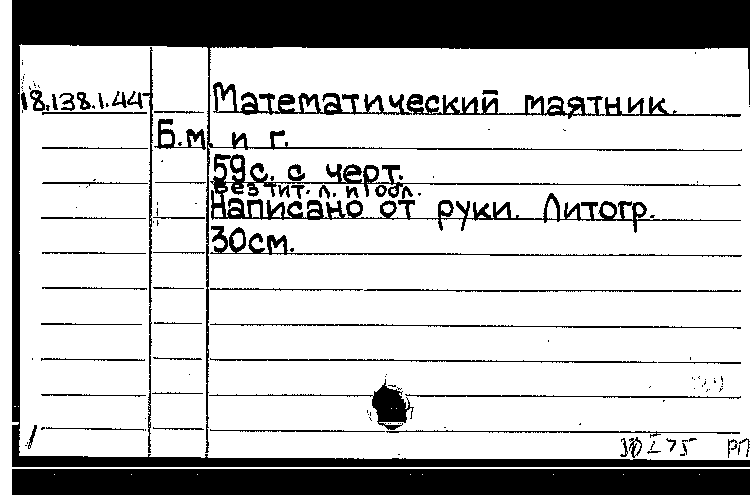 18.138.1.447 Математический маятник.
Б.м. и г.
59с. с черт.
Без тит. л. и обл.
Написано от руки. Литогр.
30см.
30 I 75 РП